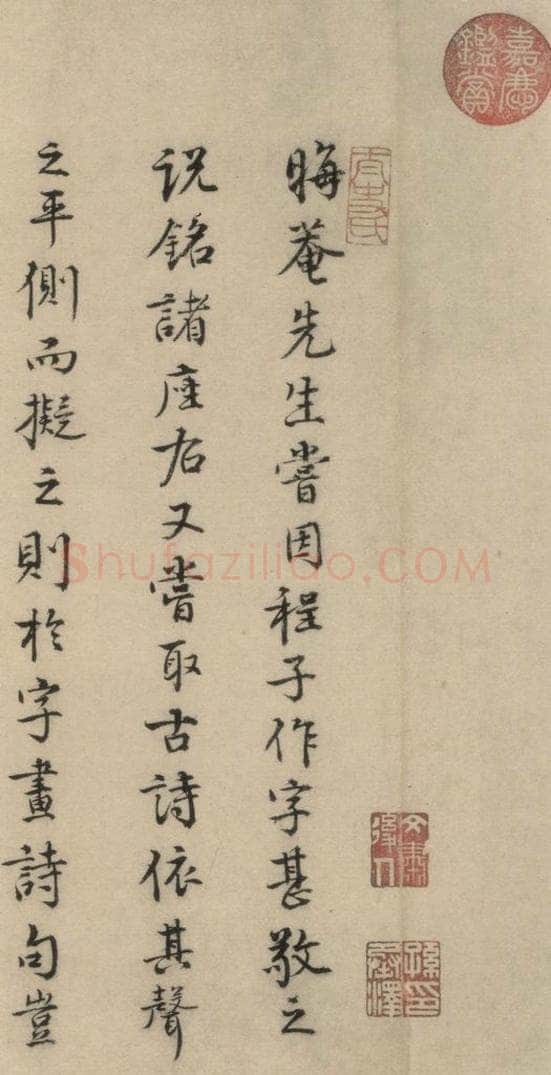 晦菴先生嘗因程子作字甚敬之
説銘諸座右又嘗取古詩依其聲
之平側而擬之則於字畫詩句豈
嘉慶鑑賞
Shufaziliao.COM